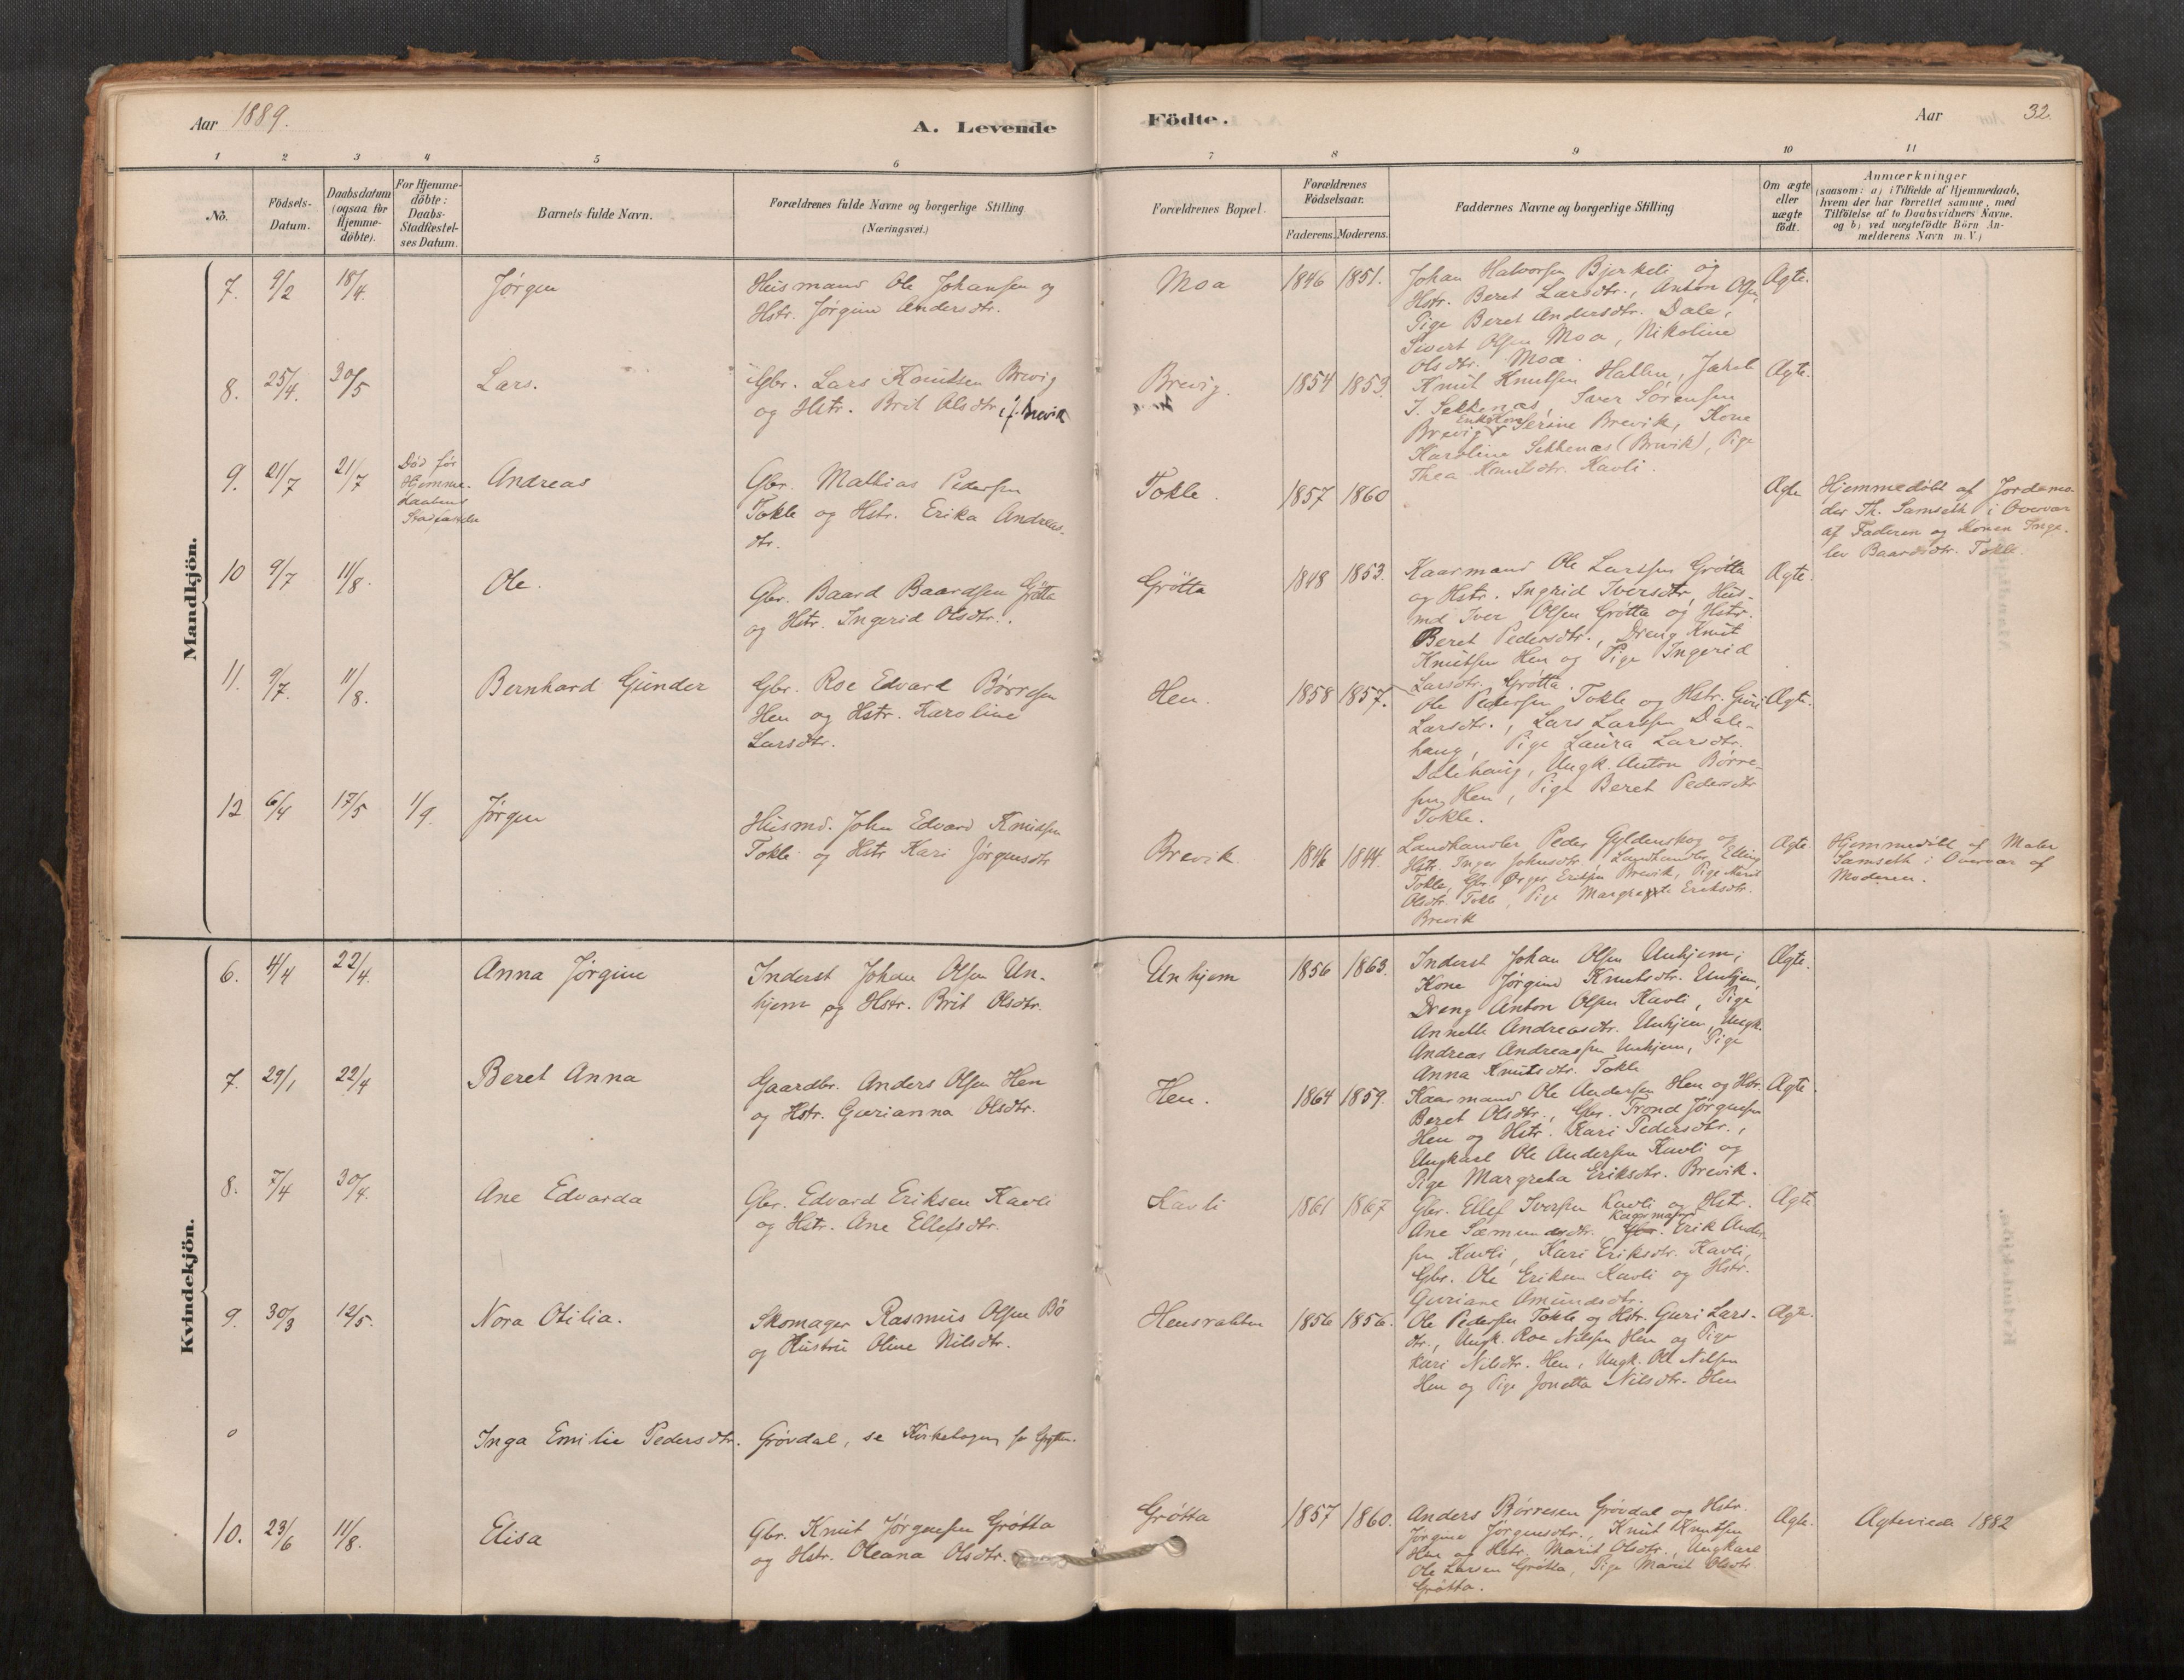 Aar 1889.
A. Levende
Födte.
Aar
32.
1 2 3 4 5 6 7 8 9 10 11
No.
Födsels-
Datum.
Daabsdatum
(ogsaa for
Hjemme-
döbte).
For Hjemme-
döbte:
Daabs-
Stadfæstel-
ses Datum.
Barnets fulde Navn.
Forældrenes fulde Navne og borgerlige Stilling
(Næringsvei.)
Forældrenes Bopæl.
Forældrenes
Födselsaar.
Faderens. Moderens.
Faddernes Navne og borgerlige Stilling
Om ægte
eller
uægte
födt.
Anmærkninger
(saasom: a) i Tilfælde af Hjemmedaab,
hvem der har forrettet samme, med
Tilföielse af to Daabsvidners Navne.
og b) ved uægtefödte Börn An-
melderens Navn m. V.)
Mandkjön.
7. 9/2 18/4. Jørgen
Husmand Ole Johansen og
Hstr. Jørgine Andersdtr.
Moa 1846 1851.
Johan Halvorsen Bjerkeli og
Hstr. Beret Larsdtr., Anton Olsen,
Pige Beret Andersdtr. Dale,
Sivert Olsen Moa, Nikoline
Olsdtr. Moa.
Ægte.
8. 25/4. 30/5 Lars.
Gbr. Lars Knutsen Brevig
og Hstr. Brit Olsdtr.
Brevig. 1854 1853.
Knut Knutsen Hallen, Jakob
J. Sekkenæs, Iver Sörensen
Brevig, Enkekone Serine Brevik, Kone
Karoline Sekkenæs (Brevik), Pige
Thea Knutsdtr. Kavli.
Ægte.
9. 21/7 21/7
Död før
Hjemme-
daabens
Andreas
Gbr. Mathias Pedersen
Tokle og Hstr. Erika Andreas-
dtr.
Tokle. 1857 1860
Ægte
Hjemmedöbt af Jordemo-
der Th. Samseth i Overvær
af Faderen og Konen Inge-
lev Baardsdtr. Tokle.
10 9/7 11/8. Ole.
Gbr. Baard Baardsen Grötta
og Hstr. Ingerid Olsdtr.
Grötta 1848 1853.
Kaarmand Ole Larssen Grötta
og Hstr. Ingrid Iversdtr, Hus-
md Iver Olsen Grötta og Hstr.
Beret Pedersdtr., Dreng Knut
Knutsen Hen og Pige Ingerid
Larsdtr. Grötta.
Ægte.
11. 9/7. 11/8. Bernhard Gunder
Gbr. Roe Edvard Börresen
Hen og Hstr. Karoline
Larsdtr.
Hen. 1858 1857.
Ole Pedersen Tokle og Hstr. Guri
Larsdtr., Lars Larssen Dale-
haug, Pige Laura Larsdtr.
Dalehaug, Ungk. Anton Börre-
sen Hen, Pige Beret Pedersdtr
Tokle.
Ægte.
12 6/4 17/5 1/9. Jørgen
Husmd. John Edvard Knutsen
Tokle og Hstr Kari Jørgensdtr
Brevik. 1846 1844.
Landhandler Peder Gyldenskog og
Hstr. Inger Johnsdtr., Landhandler Elling
Tokle, Gbr Ørger Eriksen Brevik, Pige Marit
Olsdtr. Tokle, Pige Margrete Eriksdtr.
Brevik
Ægte.
Hjemmedöbt af Maler
Samseth i Overvær af
Moderen.
Kvindekjön.
6. 4/4 22/4. Anna Jørgine
Inderst Johan Olsen Un-
hjem og Hstr. Brit Olsdtr.
Unhjem 1856 1863.
Inderst Johan Olsen Unhjem,
Kone Jørgine Knutsdtr. Unhjem,
Dreng Anton Olsen Kavli, Pige
Annette Andreasdtr. Unhjem, Ungk.
Andreas Andreassen Unhjem, Pige
Anna Knutsdtr. Tokle
Ægte.
7. 29/1 22/4 Beret Anna
Gaardbr. Anders Olsen Hen
og Hstr. Gurianna Olsdtr.
Hen. 1864 1859.
Kaarmand Ole Andersen Hen og Hstr.
Beret Olsdtr., Gbr. Trond Jørgensen
Hen og Hstr. Kari Pedersdtr.,
Ungkarl Ole Andersen Kavli og
Pige Margreta Eriksdtr. Brevik.
Ægte.
8. 7/4 30/4. Ane Edvarda
Gbr. Edvard Eriksen Kavli
og Hstr. Ane Ellefsdtr.
Kavli 1861 1867
Gbr. Ellef Iversen Kavli og Hstr.
Ane Sæmundsdtr. Kaarmand Erik Ander-
sen Kavli, Kari Eriksdtr. Kavli,
Gbr. Ole Eriksen Kavli og Hstr.
Guriane Amundsdtr.
Ægte
9. 30/3 12/5. Nora Otilia.
Skomager Rasmus Olsen Bö
og Hustru Oline Nilsdtr.
Hensvalden 1856 1856.
Ole Pedersen Tokle og Hstr. Guri Lars-
dtr., Ungk. Roe Nilsen Hen og Pige
Kari Nilsdtr. Hen, Ungk. Ole Nilsen
Hen og Pige Jonetta Nilsdtr. Hen
Ægte.
Inga Emilie Pedersdtr. Grövdal, se Kirkebogen for Grytten.
10. 23/6 11/8. Elisa
Gbr. Knut Jørgensen Grötta
og Hstr. Oleana Olsdtr.
Grötta 1857 1860.
Anders Börresen Grövdal og Hstr.
Jørgine Jørgensdtr., Knut Knutsen
Hen og Hstr. Marit Olsdtr., Ungkarl
Ole Larsen Grötta, Pige Marit Olsdtr.
Grötta.
Ægte.
Ægteviede 1882